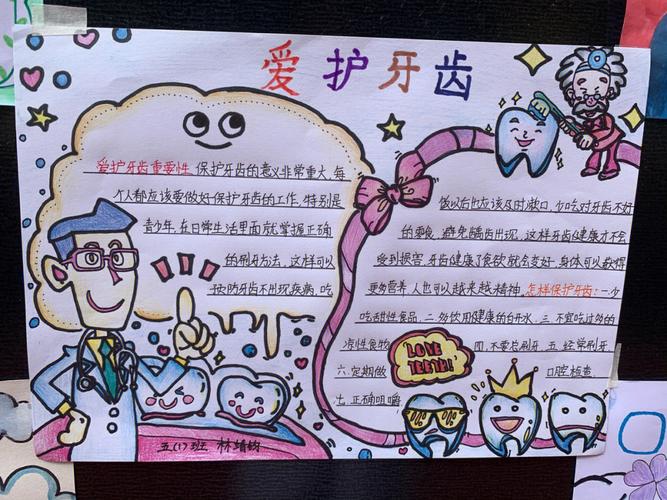 爱护牙齿
爱护牙齿重要性 保护牙齿的意义非常重大,每
个人都应该要做好保护牙齿的工作,特别是
青少年,在日常生活里面就掌握正确
的刷牙方法,这样可以
预防牙齿不出现疾病,吃
饭以后也应该及时漱口,少吃对牙齿不好
的零食,避免龋齿出现,这样牙齿健康才不会
受到损害,牙齿健康了食欲就会变好,身体可以获得
更多营养,人也可以越来越精神,怎样保护牙齿:一.少
吃甜性食品,二.多饮用健康的白开水,三.不宜吃过多的
凉性食物 四.不要总刷牙 五.经常刷牙
六.定期做 口腔检查.
七.正确咀嚼
LOVE
TEETH!
五(1)班 林靖钧